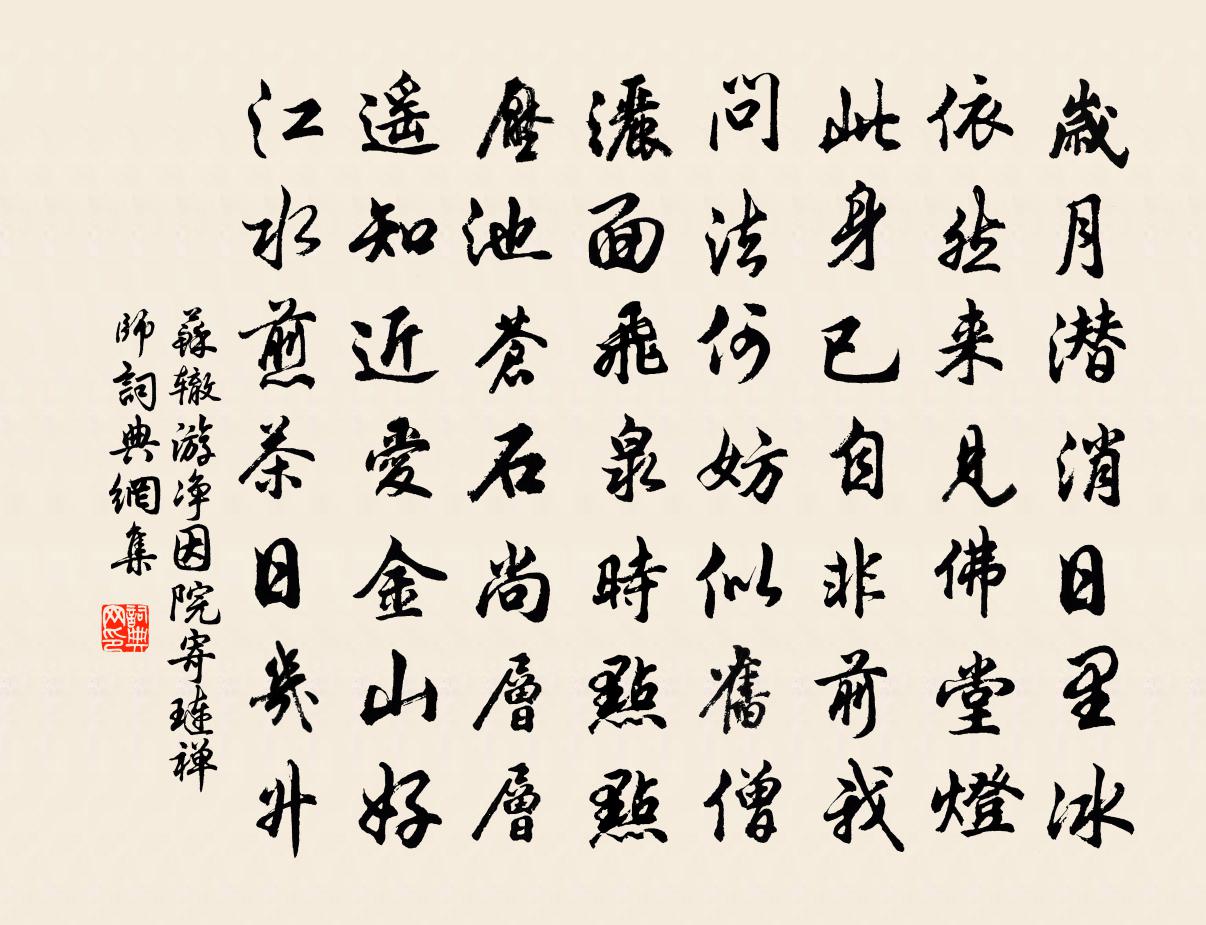 歲月潜消日里冰
依然来見佛堂燈
此身已自非前我
問法何妨似舊僧
灑面飛泉時點點
壓池蒼石尚層層
遥知近愛金山好
江水煎茶日幾升
蘇辙游净因院寄璉禅
師詞典網集
詞典网印